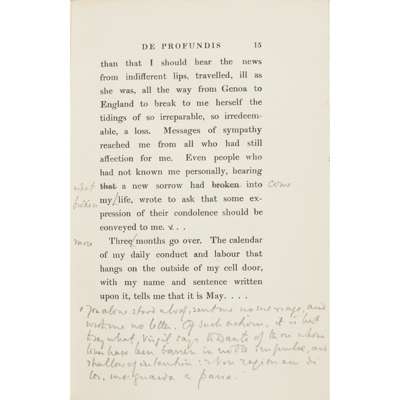 DE PROFUNDIS 15
than that I should hear the news
from indifferent lips, travelled, ill as
she was, all the way from Genoa to
England to break to me herself the
tidings of so irreparable, so irredeem-
able, a loss. Messages of sympathy
reached me from all who had still
affection for me. Even people who
had not known me personally, hearing
what that a new sorrow had broken into come
broken my life, wrote to ask that some ex-
pression of their condolence should be
conveyed to me. . . .
more Three months go over. The calendar
of my daily conduct and labour that
hangs on the outside of my cell door,
with my name and sentence written
upon it, tells me that it is May. . . .
You alone stood aloof, sent me no message, and
wrote me no letter. Of such actions, it is best
to say what Virgil says to Dante of those whose
lives have been barren in noble impulse, and
shallow of intention: Non ragioniam di
lor, ma guarda e passa.